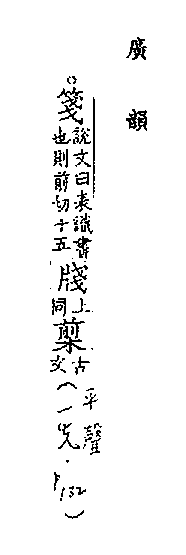 廣韻
。箋說文曰表識書也則前切十五牋上同𣓁古文(平聲一先.P132)